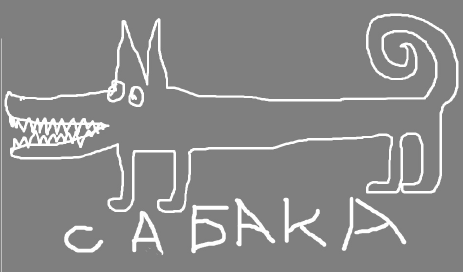 САБАКА